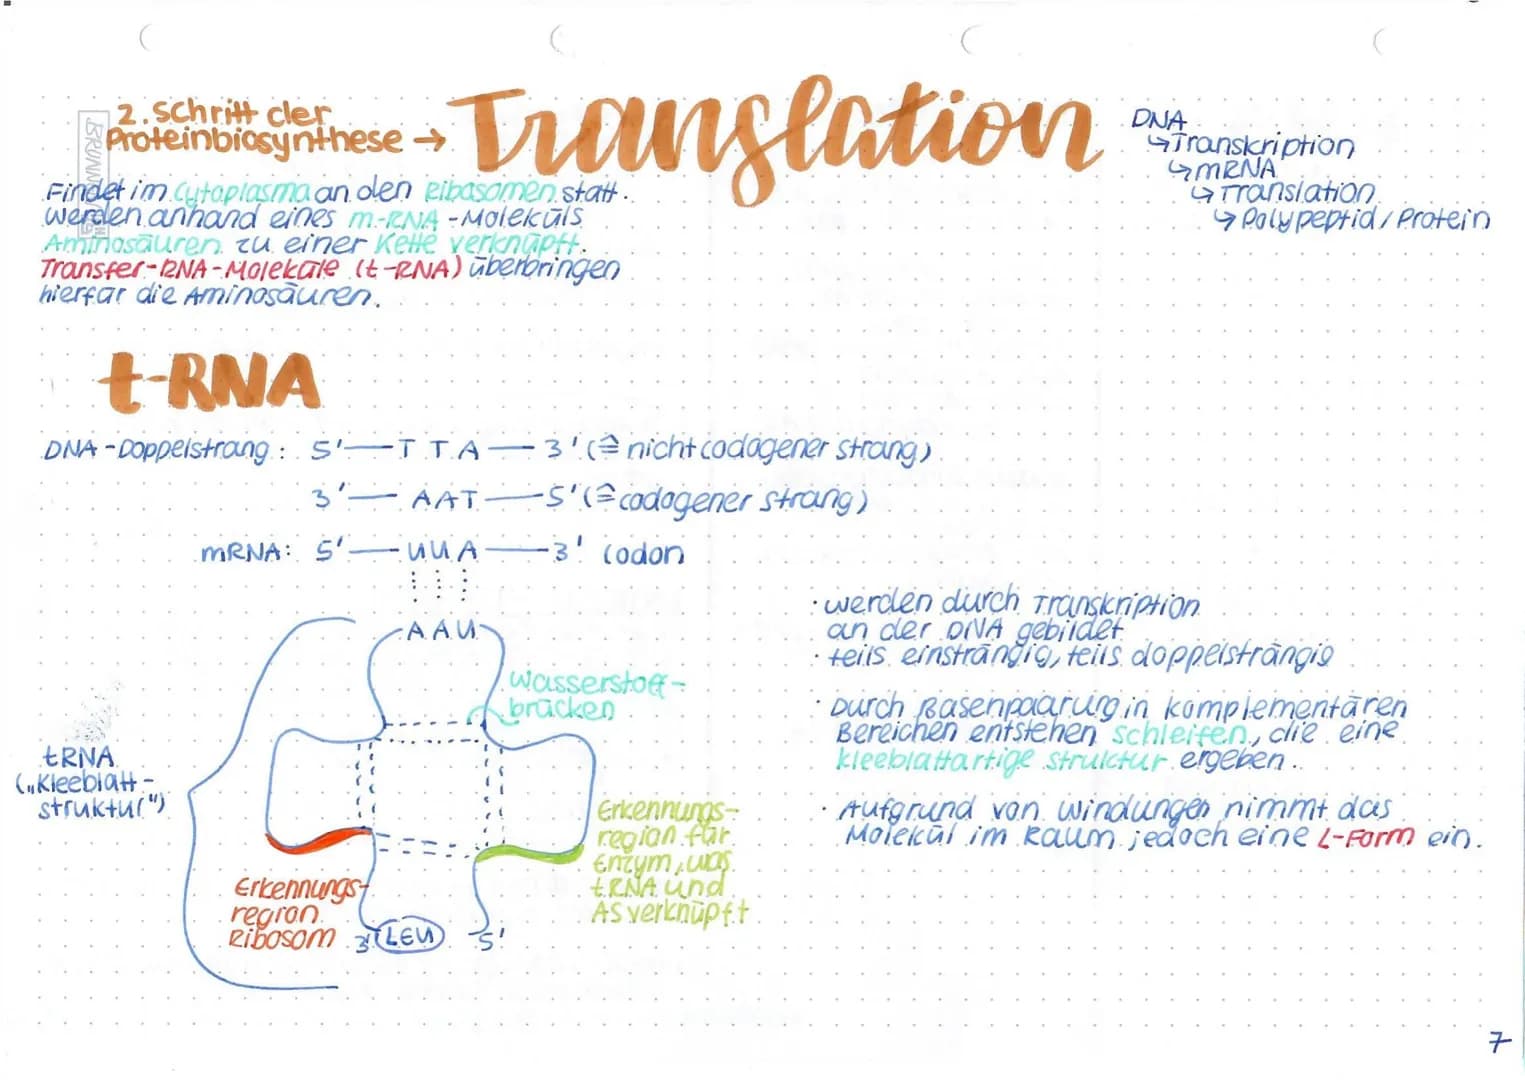 2. Schritt der
Proteinbiosynthese → Translation
Findet im Cytoplasma an den Ribosomen statt.
Werden anhand eines m-RNA-Moleküls
Aminosäuren zu einer Kette verknüpft.
Transfer-RNA-Moleküle (t-RNA) überbringen
hierfür die Aminosäuren.
DNA
↳ Transkription
↳ mRNA
↳ Translation
↳ Polypeptid/Protein
t-RNA
DNA-Doppelstrang: 5'—T T A—3' (≙ nicht codogener Strang)
3'—AAT—5' (≙ codogener Strang)
mRNA: 5'—UUA—3' Codon
AAU
Wasserstoff-
brücken
tRNA
(„Kleeblatt-
struktur")
Erkennungs-
region für
Enzym, was
tRNA und
AS verknüpft
Erkennungs-
region
Ribosom
3' LEU 5'
· werden durch Transkription
an der DNA gebildet
· teils einsträngig, teils doppelsträngig
· Durch Basenpaarung in komplementären
Bereichen entstehen Schleifen, die eine
kleeblattartige Struktur ergeben.
· Aufgrund von Windungen nimmt das
Molekül im Raum jedoch eine L-Form ein.
7